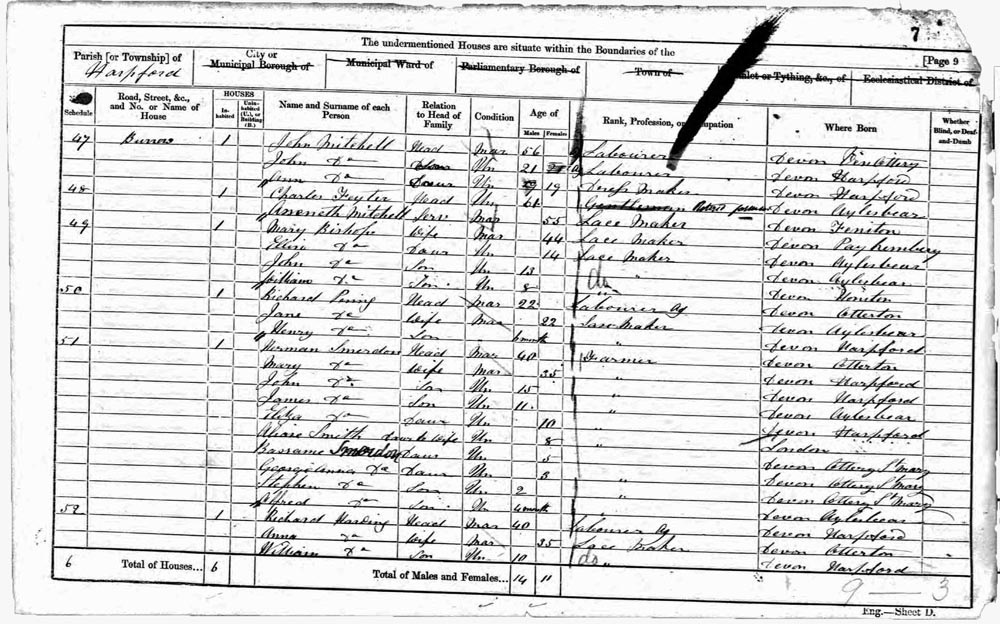 7
The undermentioned Houses are situate within the Boundaries of the
[Page 9
Parish [or Township] of
Harpford
City or
Municipal Borough of
Municipal Ward of
Parliamentary Borough of
Town of
Hamlet or Tything, &c., of
Ecclesiastical District of
Schedule
Road, Street, &c., and No. or Name of House
HOUSES
Inhabited
Uninhabited (U.), or Building (B.)
Name and Surname of each Person
Relation to Head of Family
Condition
Age of
Males
Females
Rank, Profession, or Occupation
Where Born
Whether Blind, or Deaf-and-Dumb
47 Burrow 1 John Mitchell Head Mar 56 Ag Labourer Devon Ven Ottery
John Do Un 21 Ag Labourer Devon Harpford
Ann Do Daur Un 19 Dress Maker Devon Harpford
48 1 Charles Head Un 61 Gentleman Devon Aylesbear
Mitchell Serv Mar 55 Lace Maker Devon Feniton
49 1 Mary Bishop Wife Mar 44 Lace Maker Devon Payhembury
Eliza Do Daur Un 14 Lace Maker Devon Aylesbear
John Do Son Un 13 Devon Aylesbear
William Do Son Un 8 " Devon Honiton
50 1 Richard Head Mar 22 Labourer Ag Devon Otterton
Jane Do Wife Mar 22 Lace Maker Devon Aylesbear
Henry Do Son 6 month Devon Harpford
51 1 Smerdon Head Mar 40 Farmer Devon Otterton
Mary Do Wife Mar 35 " Devon Harpford
John Do Son Un 15 " Devon Harpford
James Do Son Un 11 " Devon Aylesbear
Eliza Do Daur Un 10 " Devon Harpford
Smith Wife Un 8 " London
Smerdon Daur Un 5 " Devon Ottery St Mary
Georgeanna Do Daur Un 3 " Devon Ottery St Mary
Stephen Do Son Un 2 " Devon Ottery St Mary
Alfred Do Son Un 4 month Devon Aylesbear
52 1 Richard Harding Head Mar 40 Labourer Ag Devon Harpford
Anna Do Wife Mar 35 Lace Maker Devon Otterton
William Do Son Un 10 do " Devon Harpford
6 Total of Houses... 6 Total of Males and Females... 14 11
9 — 3
Eng.—Sheet D.